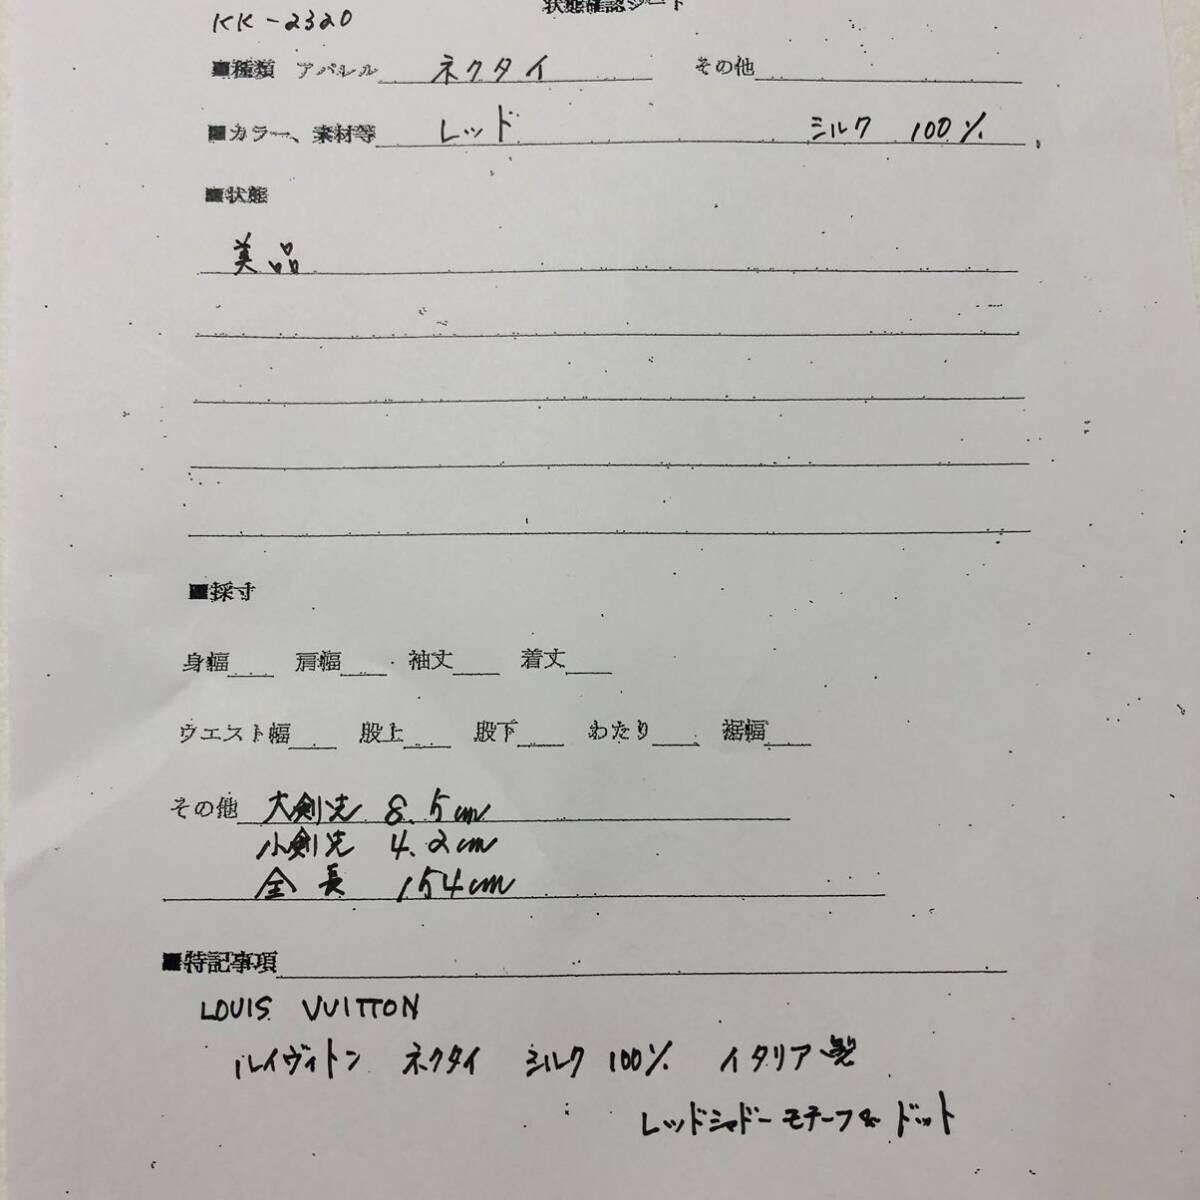 状態確認シート
KK-2320
■種類 アパレル ネクタイ その他
■カラー、素材等 レッド シルク 100%
■状態
美品
■採寸
身幅 肩幅 袖丈 着丈
ウエスト幅 股上 股下 わたり 裾幅
その他 大剣先 8.5cm
小剣先 4.2cm
全長 154cm
■特記事項
LOUIS VUITTON
ルイヴィトン ネクタイ シルク 100% イタリア製
レッドシャドーモチーフ& ドット